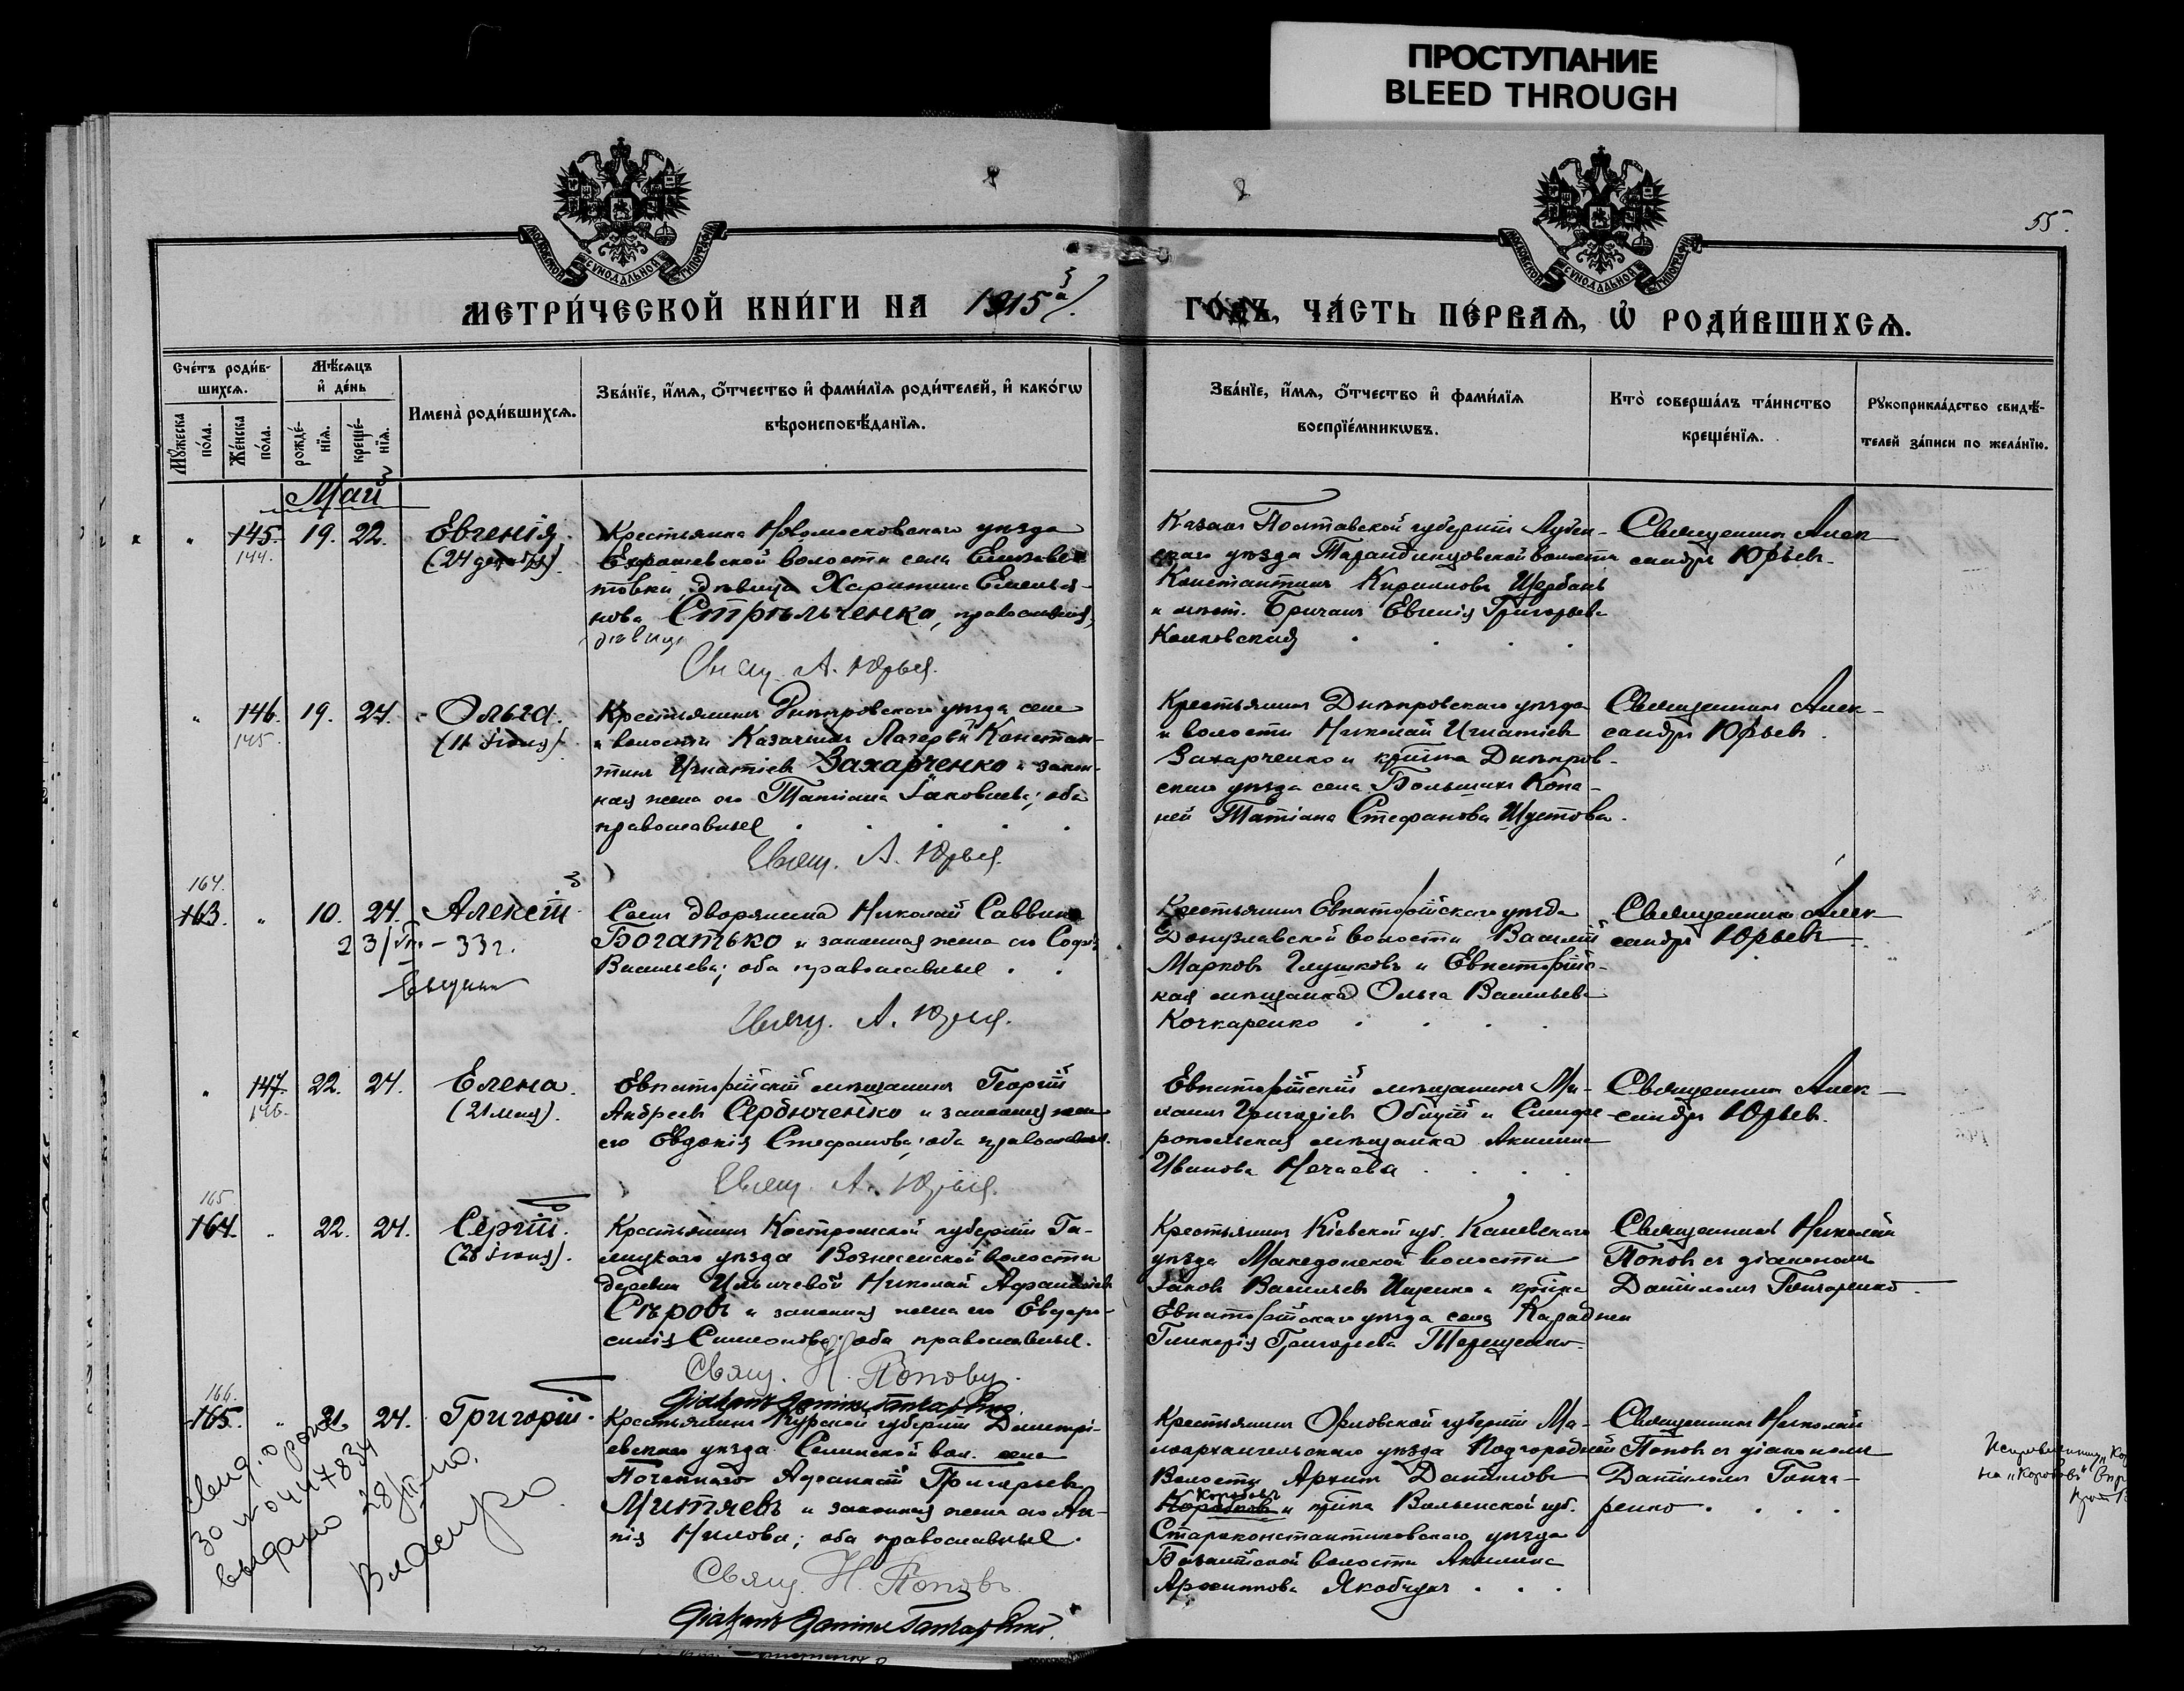 ПРОСТУПАНИЕ
BLEED THROUGH
55.
МОСКОВСКОЙ СѴНОДАЛЬНОЙ ТИПОГРАФІИ
МОСКОВСКОЙ СѴНОДАЛЬНОЙ ТИПОГРАФІИ
МЕТРИ́ЧЕСКОЙ КНИ́ГИ НА 1915й
ГО́ДЪ, ЧА́СТЬ ПЕ́РВАѦ, Ѡ҆ РОДИ́ВШИХСѦ.
Сче́тъ роди́в-
шихсѧ.
Мꙋ́жеска по́ла.
Же́нска по́ла.
Мѣ́сѧцъ
и҆ де́нь
рожде́-
нїѧ.
креще́-
нїѧ.
Имена̀ роди́вшихсѧ.
Зва́нїе, и҆́мѧ, ѻ҆́тчество и҆ фами́лїѧ роди́телей, и҆ како́гѡ
вѣроисповѣ́данїѧ.
Зва́нїе, и҆́мѧ, ѻ҆́тчество и҆ фами́лїѧ
воспрїе́мникѡвъ.
Кто̀ соверша́лъ та́инство
креще́нїѧ.
Рꙋкоприкла́дство свидѣ́-
телей за́писи по жела́нїю.
Май
" 145. 19. 22. Евгенія
144.
(24 декабря).
Крестьянка Новомосковскаго уѣзда
волости села Елизаве-
товки, дѣвица Харитина Емелья-
нова Стрѣльченко, православная,
дѣвица
Свящ. А. Юрьев.
Казакъ Полтавской губерніи Лубен-
скаго уѣзда Тарандинцовской волости
Константинъ Кирилловъ Щербань
и мѣст. Бричанъ Евгенія Григорьева
Священникъ Алек-
сандръ Юрьевъ.
" 146. 19. 24. Ольга.
145.
(11 іюля).
Крестьянинъ Днѣпровскаго уѣзда села
и волости Казачьихъ Лагерей Констан-
тинъ Игнатіевъ Захарченко и закон-
ная жена его Татіана Іаковлева; оба
православные
Свящ. А. Юрьев.
Крестьянинъ Днѣпровскаго уѣзда
и волости Николай Игнатіевъ
Захарченко и кр-нка Днѣпров-
скаго уѣзда села Большихъ Копа-
ней Татіана Стефанова Шустова.
Священникъ Алек-
сандръ Юрьевъ.
164.
163. " 10. 24. Алексій
23/VII - 33 г.
Сынъ дворянина Николай Саввинъ
Богатько и законная жена его Софія
Васильева; оба православные
Свящ. А. Юрьев.
Крестьянинъ Евпаторійскаго уѣзда
Донузлавской волости Василій
Марковъ Глушковъ и Евпаторійс-
кая мѣщанка Ольга Васильева
Кочкаренко
Священникъ Алек-
сандръ Юрьевъ
" 147. 22. 24. Елена.
146.
(21 мая).
Евпаторійскій мѣщанинъ Георгій
Андреевъ Сердюченко и законная жена
его Евдокія Стефанова; оба православные.
Свящ. А. Юрьев.
Евпаторійскій мѣщанинъ Ми-
хаилъ Григоріевъ и Симфе-
ропольская мѣщанка Акилина
Иванова Нечаева
Священникъ Алек-
сандръ Юрьевъ.
165
164. " 22. 24. Сергій.
Крестьянинъ Костромской губерніи Га-
личскаго уѣзда Вознесенской волости
деревни Ильичевой Николай Аѳанасіевъ
Сѣровъ и законная жена его Евфро-
синія Симеонова; оба православные.
Свящ. Н. Поповъ.
Крестьянинъ Кіевской губ. Каневскаго
уѣзда Македонской волости
Іаковъ Васильевъ Ищенко и кр-нка
Евпаторійскаго уѣзда села
Гликерія Григорьева Терещенко
Священникъ Николай
Поповъ съ діакономъ
Даніиломъ Гончаренко.
166.
165. " 21. 24. Григорій.
Крестьянинъ Курской губерніи Дмитрі-
евскаго уѣзда Селинской вол. села
Григорьевъ
Митяевъ и законная жена его Ан-
на Нилова; оба православные.
Свящ. Н. Поповъ.
Діаконъ Даніилъ Гончаренко.
Крестьянинъ Орловской губерніи Ма-
лоархангельскаго уѣзда Подгородней
Волости Архипъ Даніиловъ
Коробовъ
и кр-нка Волынской губ.
Староконстантиновскаго уѣзда
волости Акилина
Священникъ Николай
Поповъ съ діакономъ
Даніиломъ Гонча-
ренко
Свид. о рожд.
выдано
на „Коробовъ"